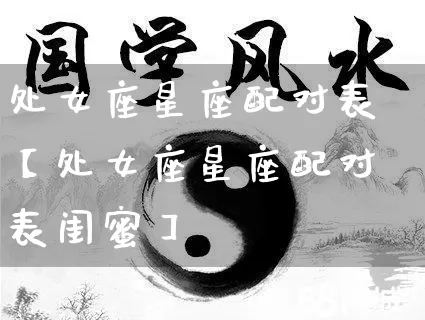 国学风水
处女座星座配对表
【处女座星座配对
表闺蜜】